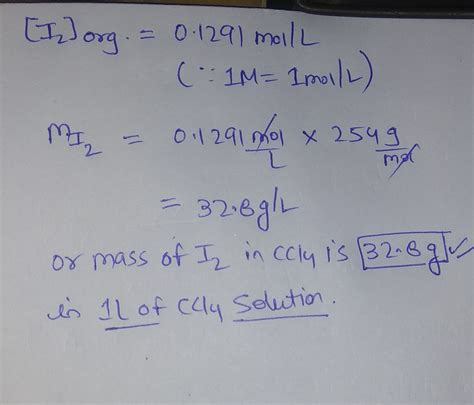 [I₂]org. = 0.1291 mol/L
(∵ 1M = 1mol/L)
mI₂ = 0.1291 mol/L × 254 g/mol
= 32.8 g/L
or mass of I₂ in CCl4 is 32.8 g ✓
in 1L of CCl4 Solution.